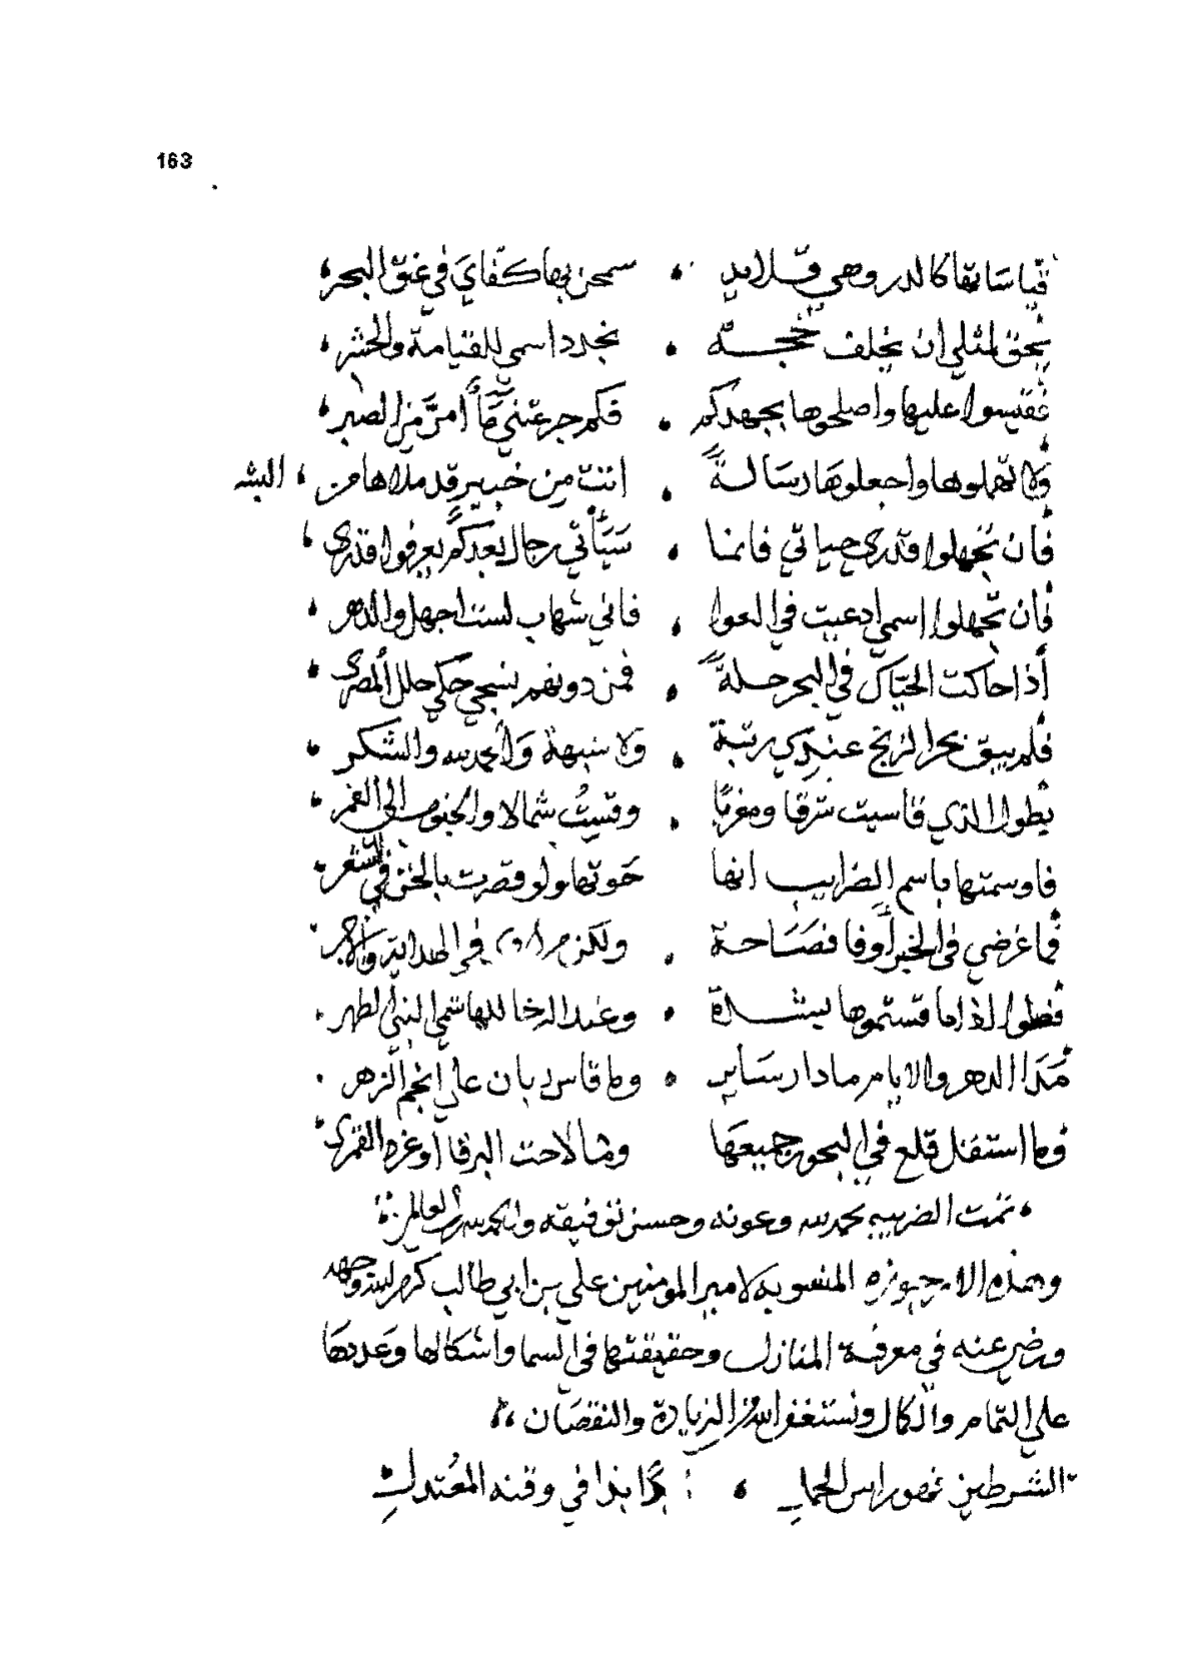 163
قياساتها كالدر وهي قلايد سمحن بها كفاي في عنق البحر
يحق لمثلي ان يخلف حجة تجدد اسمي للقيامة والحشر
فقيسوا عليها واصلحوها بجهدكم فكم جرعتني امر من الصبر
ولا تهملوها واجعلوها رسالة اتت من خبير قد ملاها من البشر
فان تجهلوا قدري حياتي فانما سيأتي رجال بعدكم يعرفوا قدري
فان تجهلوا اسمي ادعيت في العوا فاني شهاب لست اجهل والدهر
أذا حاكت الحياك في البحر حلة فمن دونهم نسجي حكى حلل المصري
فلم يبق بحر الزنج عندي ريبة ولا شبهة والحمد لله والشكر
بطول الذي قاسيت شرقا ومغربا وقيست شمالا والجنوب الى الغمر
فاوسمتها باسم الضرايب انها حوتها ولو قصرت بالحق في الشعر
فما غرضي في الخبر أوفا فصاحة ولكن في الهداية والاجر
فصلوا اذا ما قستموها بشدة وعند الرخا للهاشمي النبي الطهر
مدا الدهر والايام ما دار ساير وما قاس ربان على أنجم الزهر
وما استقل قلع في البحور جميعها وما لاحت البرقا أو غرد القمري
تمت الضريبه بحمد لله وعونه وحسن توفيقه والحمد لله رب العالمين
وهذه الارجوزه المنسوبه لامير المومنين علي بن ابي طالب كرم الله وجهه
ورضي عنه في معرفة المنازل وحقيقتها في السما واشكالها وعددها
على التمام والكمال ونستغفر الله من الزيادة والنقصان
الشرطين فهو راس الحمل بدا في وقته المعتدل